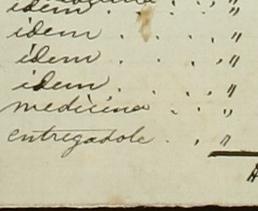 idem . . . "
idem . . . "
idem . . . "
idem . . . "
medicina . . "
entregadole . . "